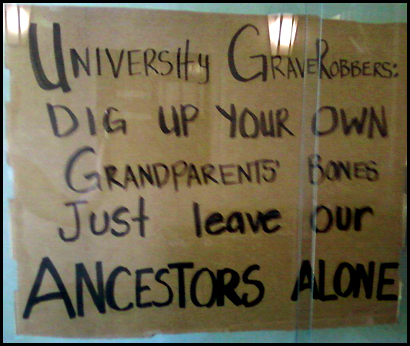 UNIVERSITY GRAVEROBBERS:
DIG UP YOUR OWN
GRANDPARENTS' BONES
Just leave our
ANCESTORS ALONE